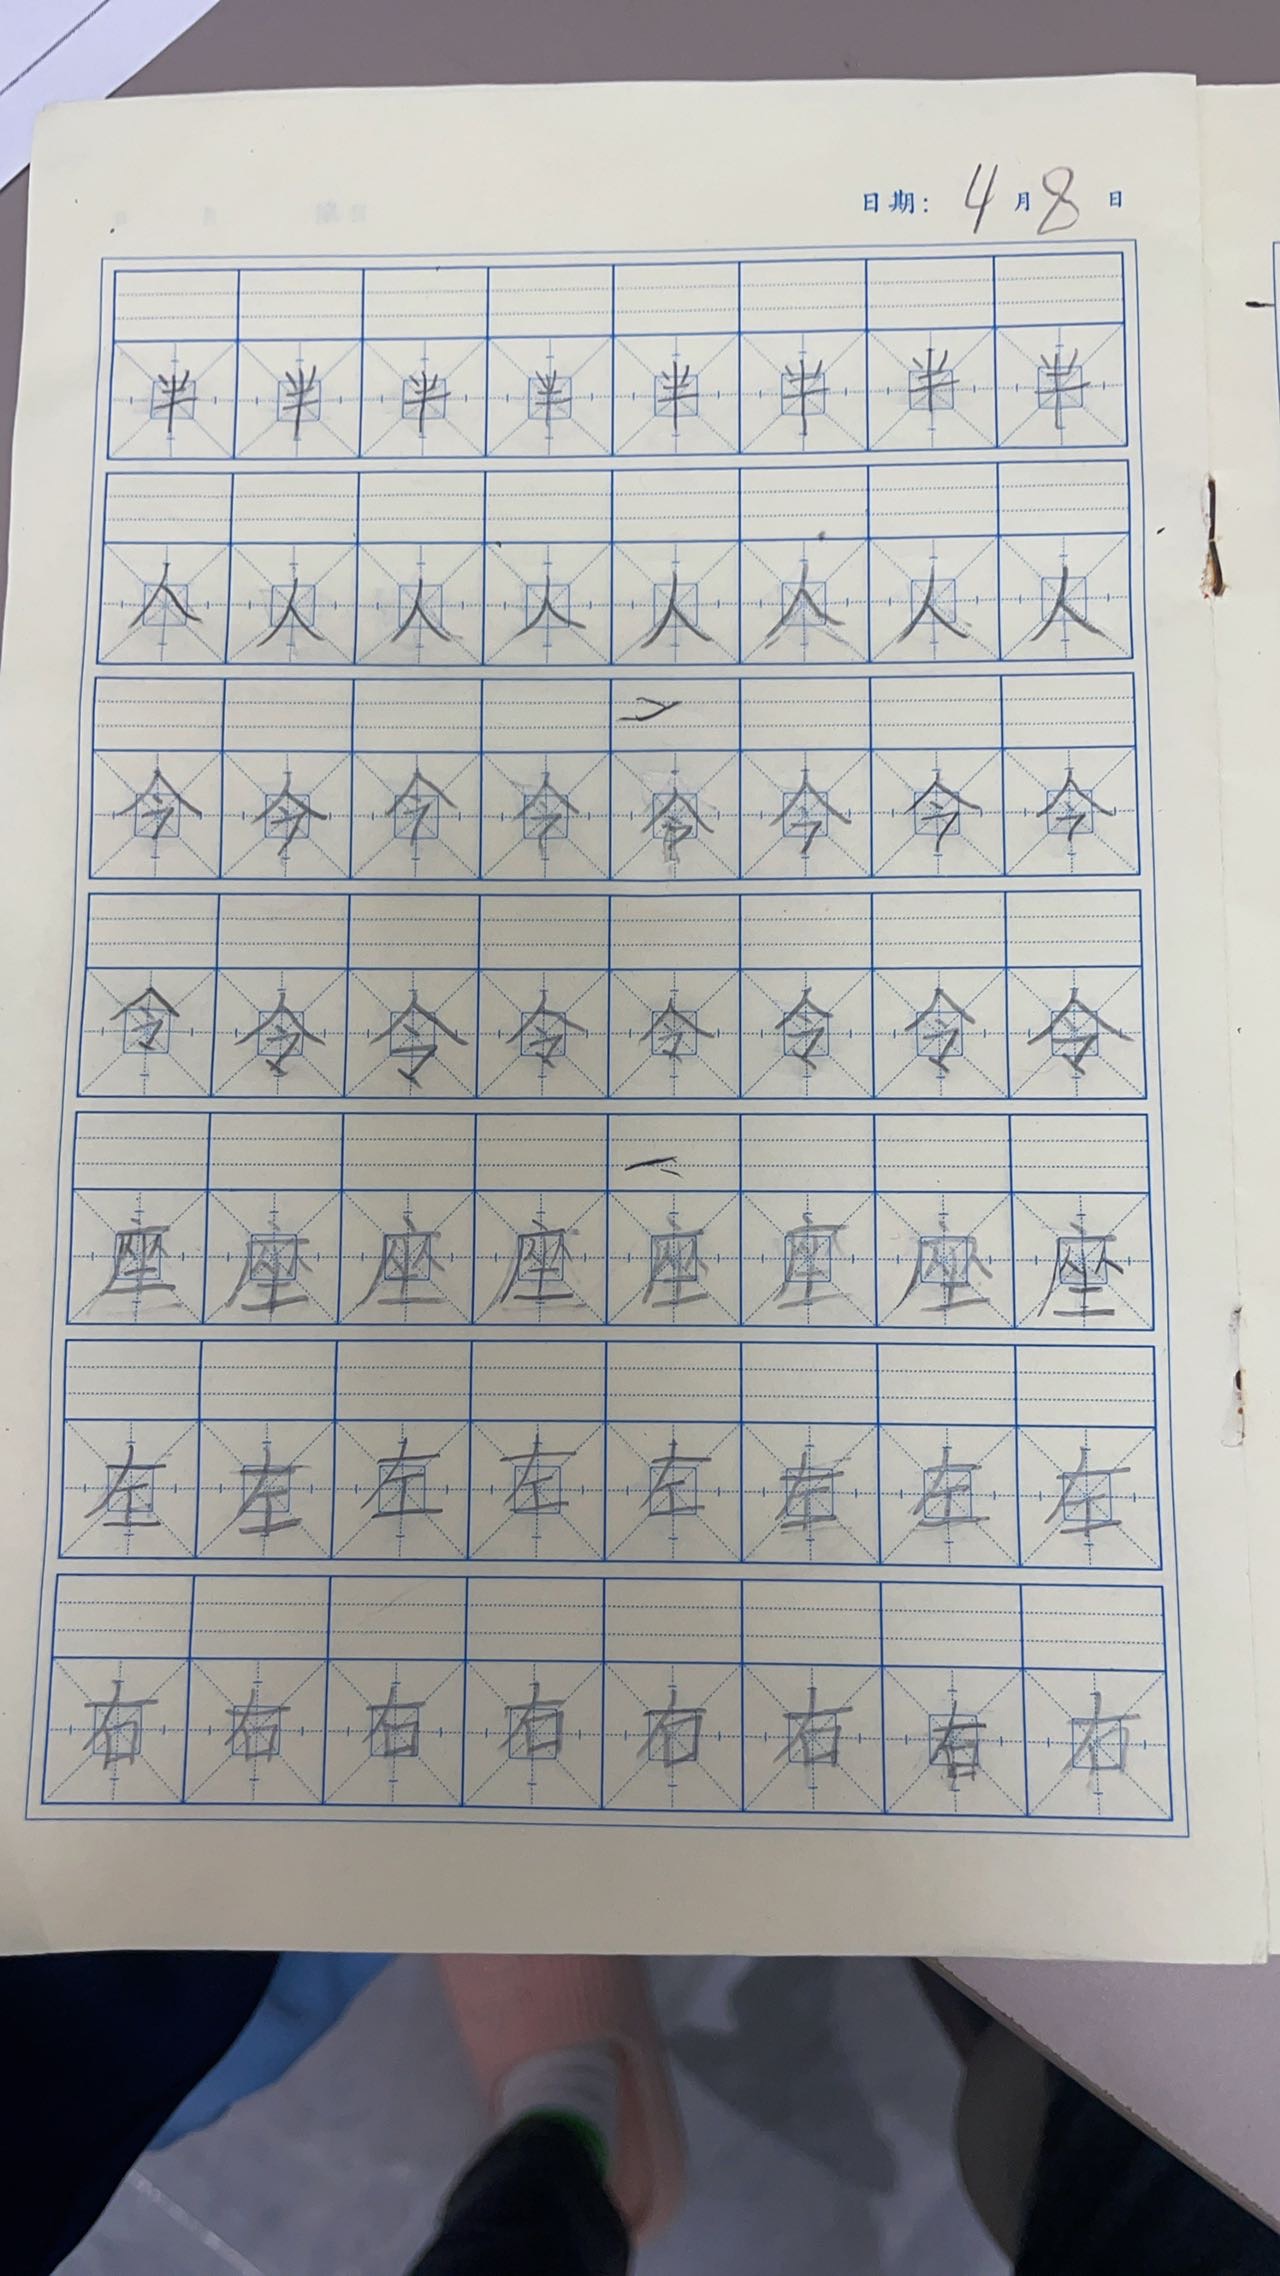 日期: 4月8日
半半半半半半半半
人人人人人人人人
今今今今今今今今
令令令令令令令令
座座座座座座座座
左左左左左左左左
右右右右右右右右